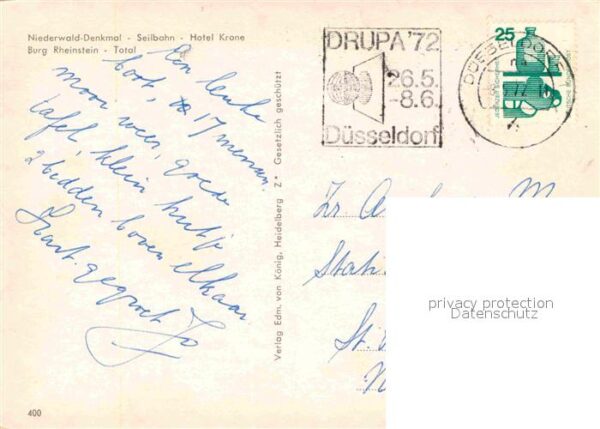 Niederwald-Denkmal - Seilbahn - Hotel Krone
Burg Rheinstein - Total
Een leuke
boot, 17 mensen.
mooi weer, goede
tafel klein hutje
2 bedden boven elkaar
Hart. gegroet Jo
Verlag Edm. von König, Heidelberg Z* Gesetzlich geschützt
DRUPA '72
26.5.
-8.6.
Düsseldorf
25
DÜSSELDORF
St.
privacy protection
Datenschutz
400